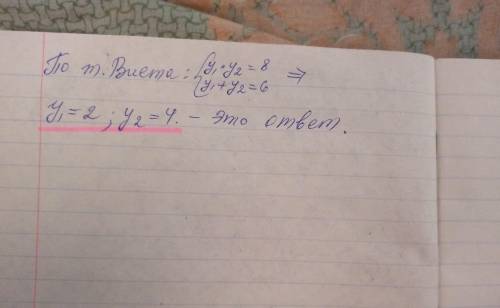 По т. Виета: {y₁·y₂=8 ⇒
{y₁+y₂=6
y₁=2; y₂=4. – это ответ.